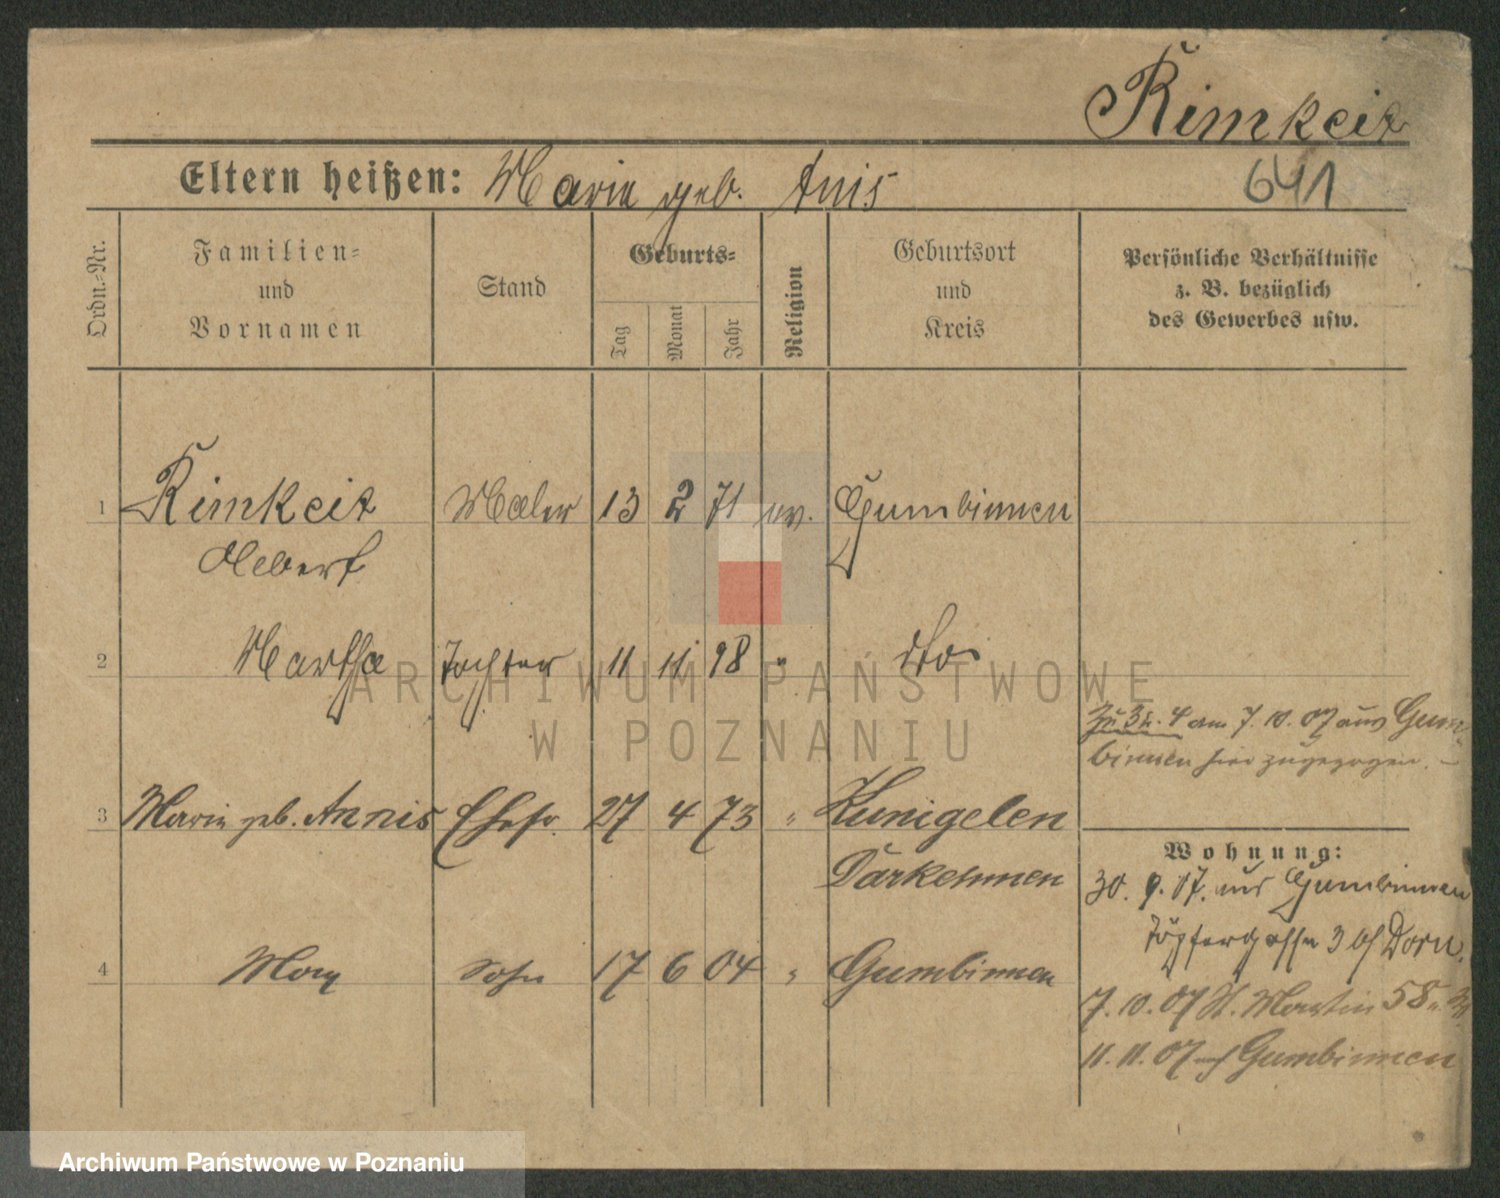 Rimkeit
Eltern heißen: Marie geb. Anis
641
Ordn.-Nr.
Familien-
und
Vornamen
Stand
Geburts-
Tag
Monat
Jahr
Religion
Geburtsort
und
Kreis
Persönliche Verhältnisse
z. B. bezüglich
des Gewerbes usw.
1 Rimkeit Maler 13 2 71 ev. Gumbinnen
2 Martha Tochter 11 11 98 " dto
Zu 3 u. 4 am 7.10.07 aus Gum-
binnen hier zugezogen. –
3 Marie geb. Annis Ehefr. 27 4 73 " Kunigelen
Darkehmen
Wohnung:
30. 9. 07. aus Gumbinnen
Töpfergasse 3 bf Dorn.
4 Max Sohn 17 6 04 " Gumbinnen
7. 10. 07 St. Martin 58
11. 11. 07 nach Gumbinnen
ARCHIWUM PAŃSTWOWE
W POZNANIU
Archiwum Państwowe w Poznaniu